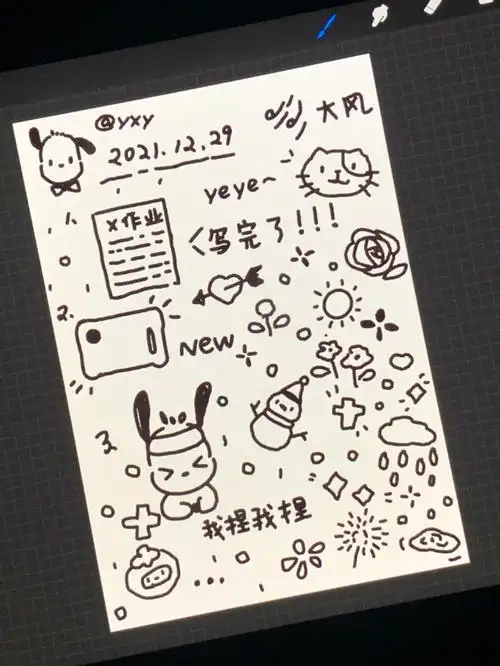 @yxy
2021.12.29
大风
yeye~
x作业
写完了!!!
2.
New
3.
我捏我捏
...